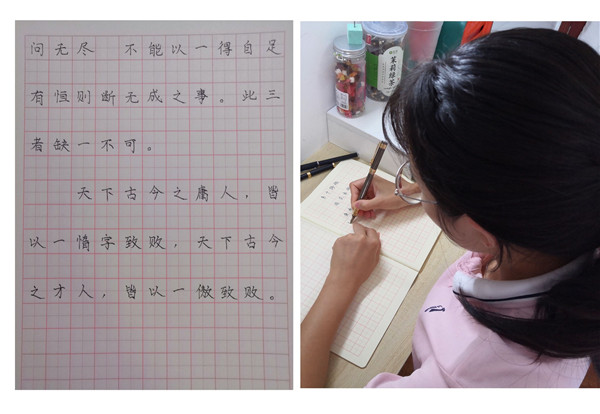 问无尽 不能以一得自足
有恒则断无成之事。此三
者缺一不可。
天下古今之庸人，皆
以一惰字致败，天下古今
之才人，皆以一傲致败。
茉莉绿茶